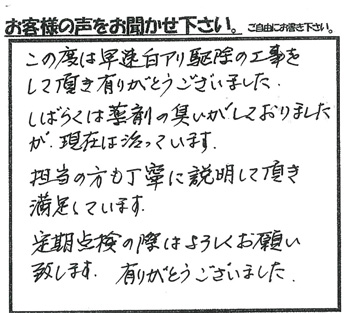 お客様の声をお聞かせ下さい。ご自由にお書き下さい。
この度は早速白アリ駆除の工事を
して頂き有りがとうございました.
しばらくは薬剤の臭いがしておりました
が、現在は治っています.
担当の方も丁寧に説明して頂き
満足しています.
定期点検の際はよろしくお願い
致します. 有りがとうございました.